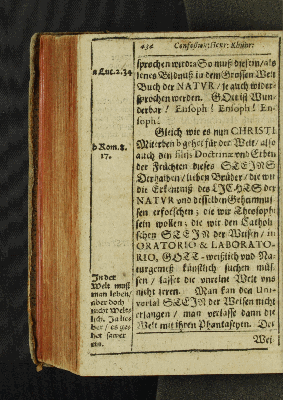 434
a Luc. 2.34
sprochen
jenes Bildnuß in dem Grossen Welt
Buch der NATVR / je auch wider-
sprochen werden. GOtt ist Wun-
derbar! Ensoph! Ensoph! En-
soph!
Gleich wie es nun CHRISTI
b Rom. 8.
17.
Miterben b gehet für der Welt / also
auch den filiis Doctrinæ vnd Erben
der Früchten dieses STEINS
Derhalben / lieben Brüder / die wir
die Erkentnuß des LICHTS der
NATVR vnd desselben Geheimnus
sen erforschen; die wir Theosophi
sein wollen; die wir den Catholi-
schen STEIN der Weisen / in
ORATORIO & LABORATO-
RIO, GOTT-weißlich vnd Na-
turgemeß künstlich suchen müs-
sen / lasset die vnreine Welt vns
nicht irren. Man kan den Uni-
versal STEIN der Weisen nicht
erlangen / man verlasse dann die
Welt mit ihren Phantaseyen. Der
Wei
In der
Welt muß
man leben/
aber doch
nicht Welt-
lich.